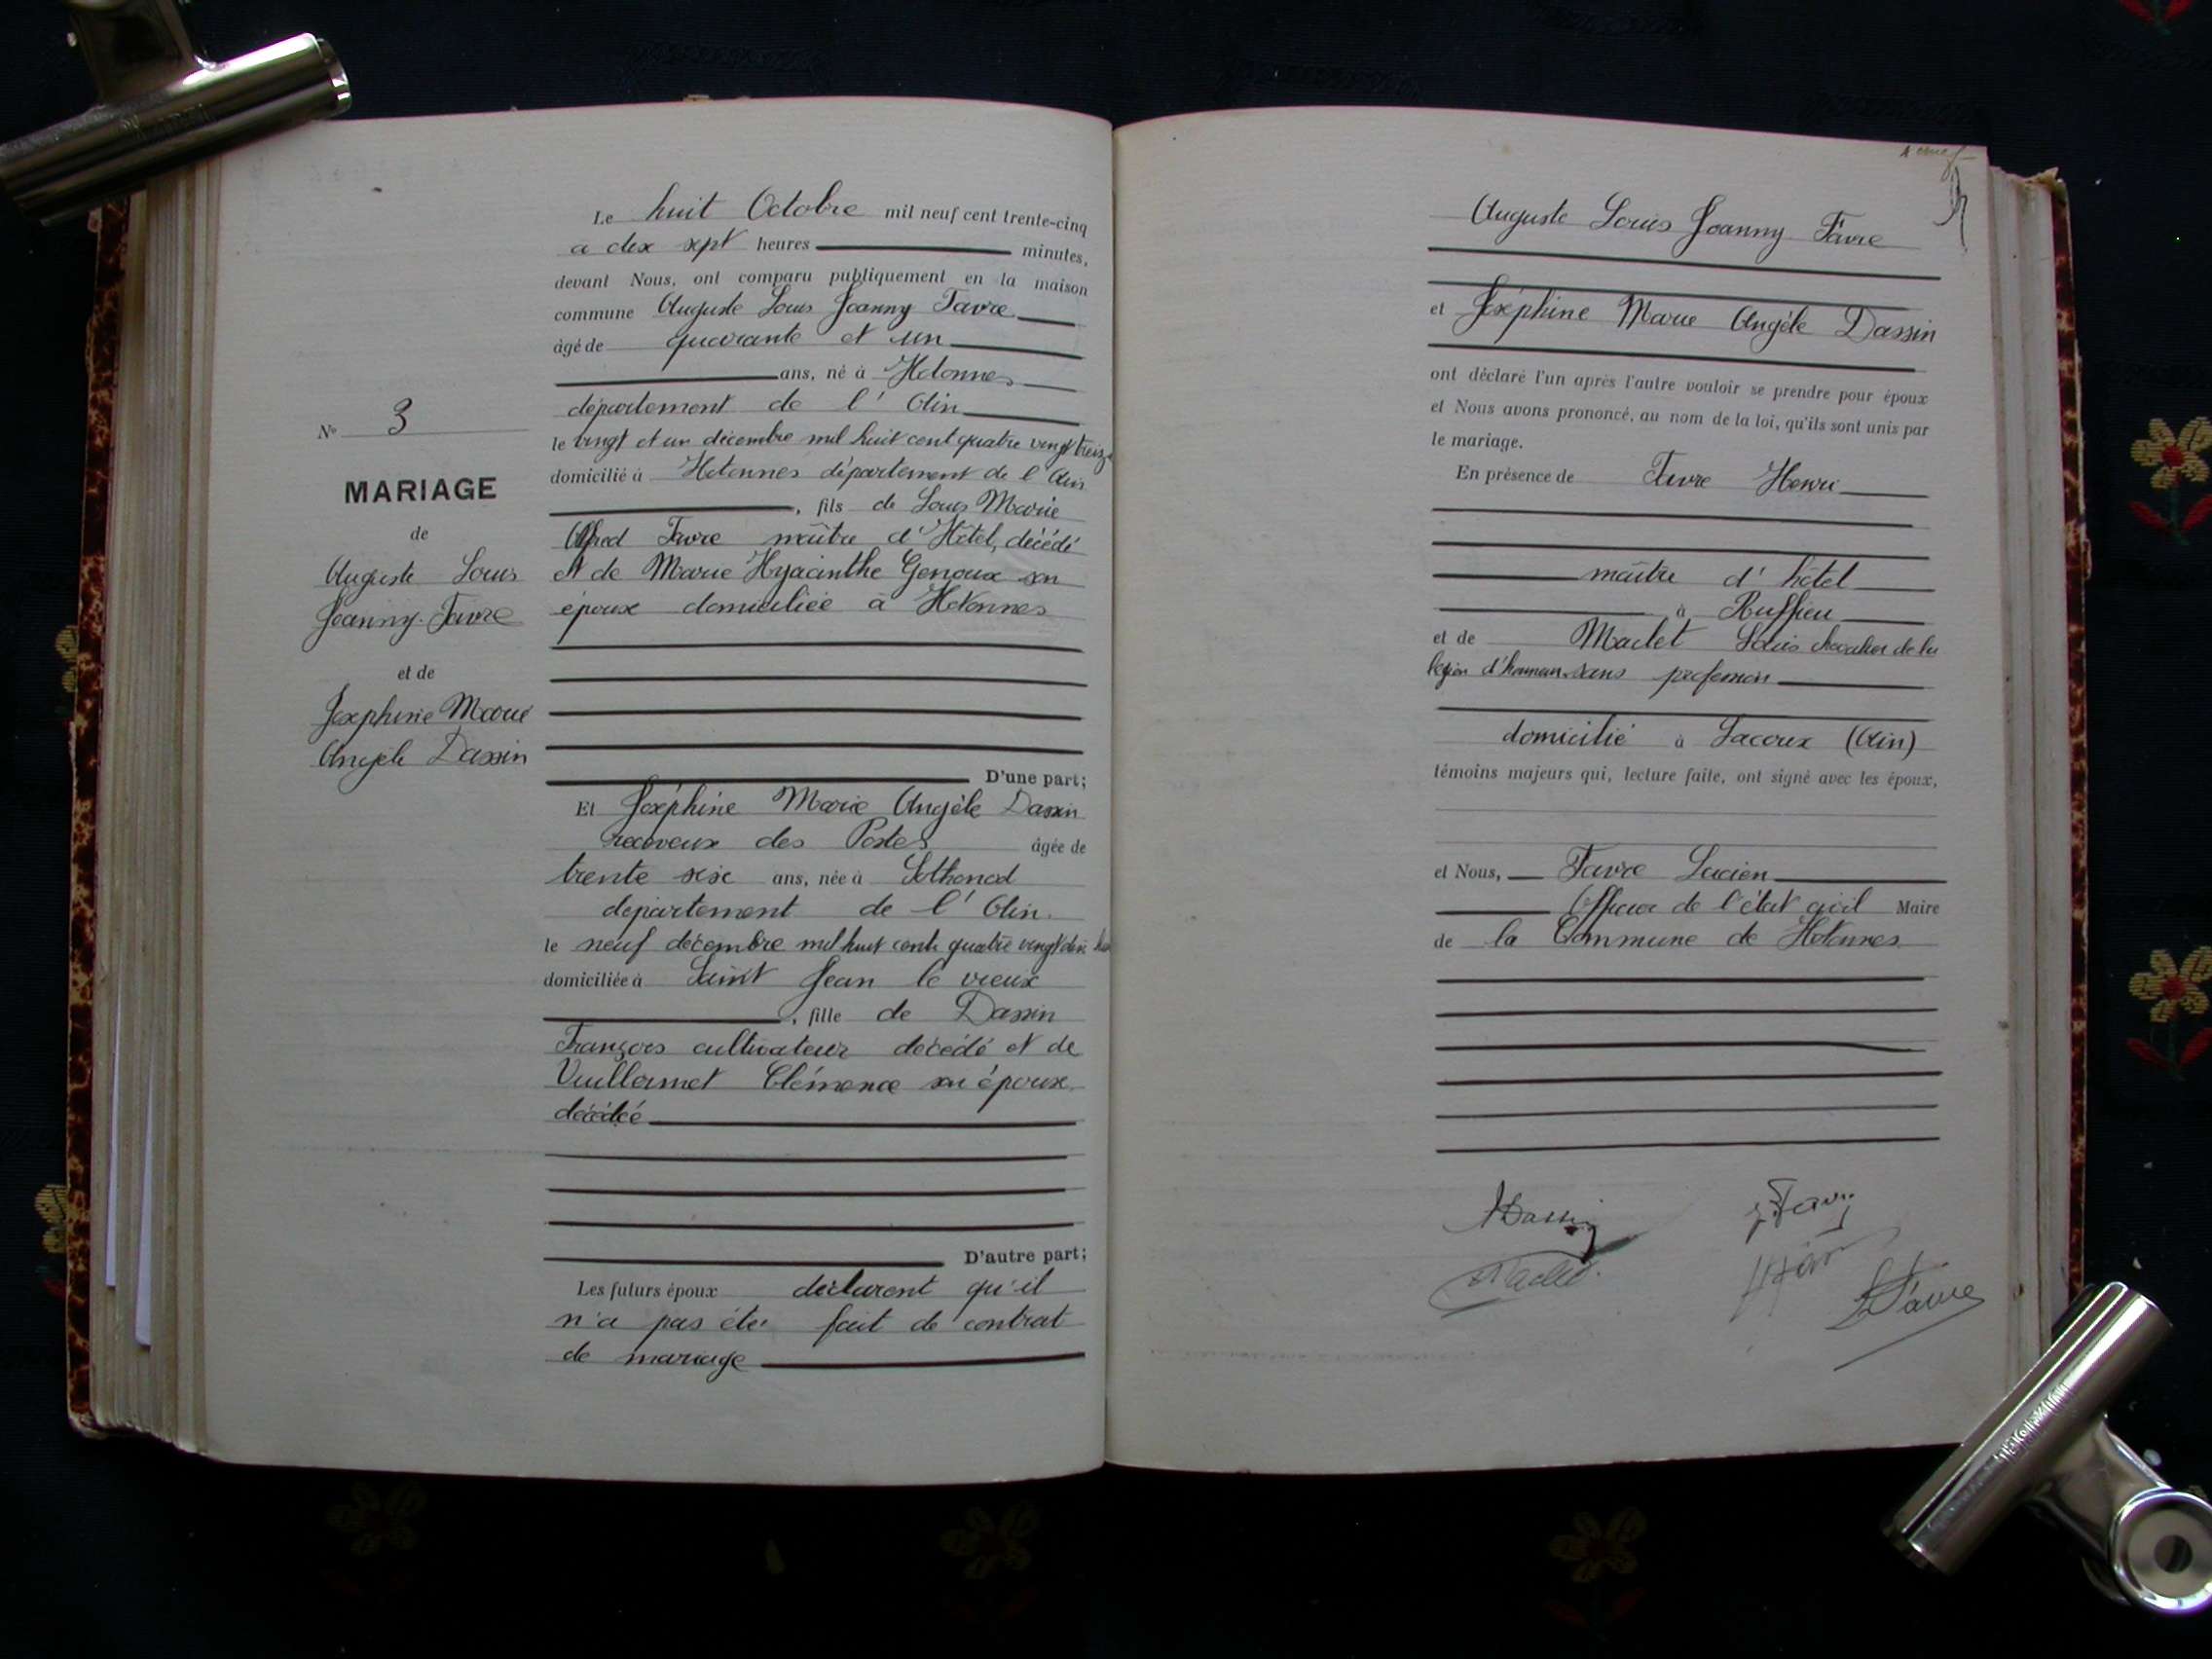 Le huit Octobre mil neuf cent trente-cinq
a dix sept heures minutes,
devant Nous, ont comparu publiquement en la maison
commune Auguste Louis Joanny Favre
âgé de quarante et un
ans, né à Hotonnes
département de l'Ain
le vingt et un décembre mil huit cent quatre vingt treize
domicilié à Hotonnes département de l'Ain
, fils de Louis Marie
Alfred Favre maître d'Hôtel, décédé
et de Marie Hyacinthe Genoux son
épouse domiciliée à Hotonnes
N° 3
MARIAGE
de
Auguste Louis
Joanny Favre
et de
Joséphine Marie
Angèle Dassin
D'une part;
Et Joséphine Marie Angèle Dassin
receveuse des Postes âgée de
trente six ans, née à Sothonod
département de l'Ain.
le neuf décembre mil huit cent quatre vingt dix huit
domiciliée à Saint Jean le vieux
, fille de Dassin
François cultivateur décédé et de
Vuillermet Clémence son épouse
décédée
D'autre part;
Les futurs époux déclarent qu'il
n'a pas été fait de contrat
de mariage
Auguste Louis Joanny Favre
et Joséphine Marie Angèle Dassin
ont déclaré l'un après l'autre vouloir se prendre pour époux
et Nous avons prononcé, au nom de la loi, qu'ils sont unis par
le mariage.
En présence de Favre Henri
maître d'hôtel
à Ruffieu
et de Maclet Louis chevalier de la
légion d'honneur sans profession
domicilié à Lacoux (Ain)
témoins majeurs qui, lecture faite, ont signé avec les époux,
et Nous, Favre Lucien
Officier de l'état civil Maire
de la Commune de Hotonnes
Dassin
J. Favre
Maclet
L Favre